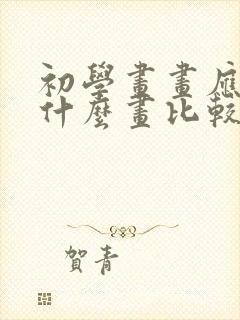 初學畫畫應
什麼畫比較
賀青